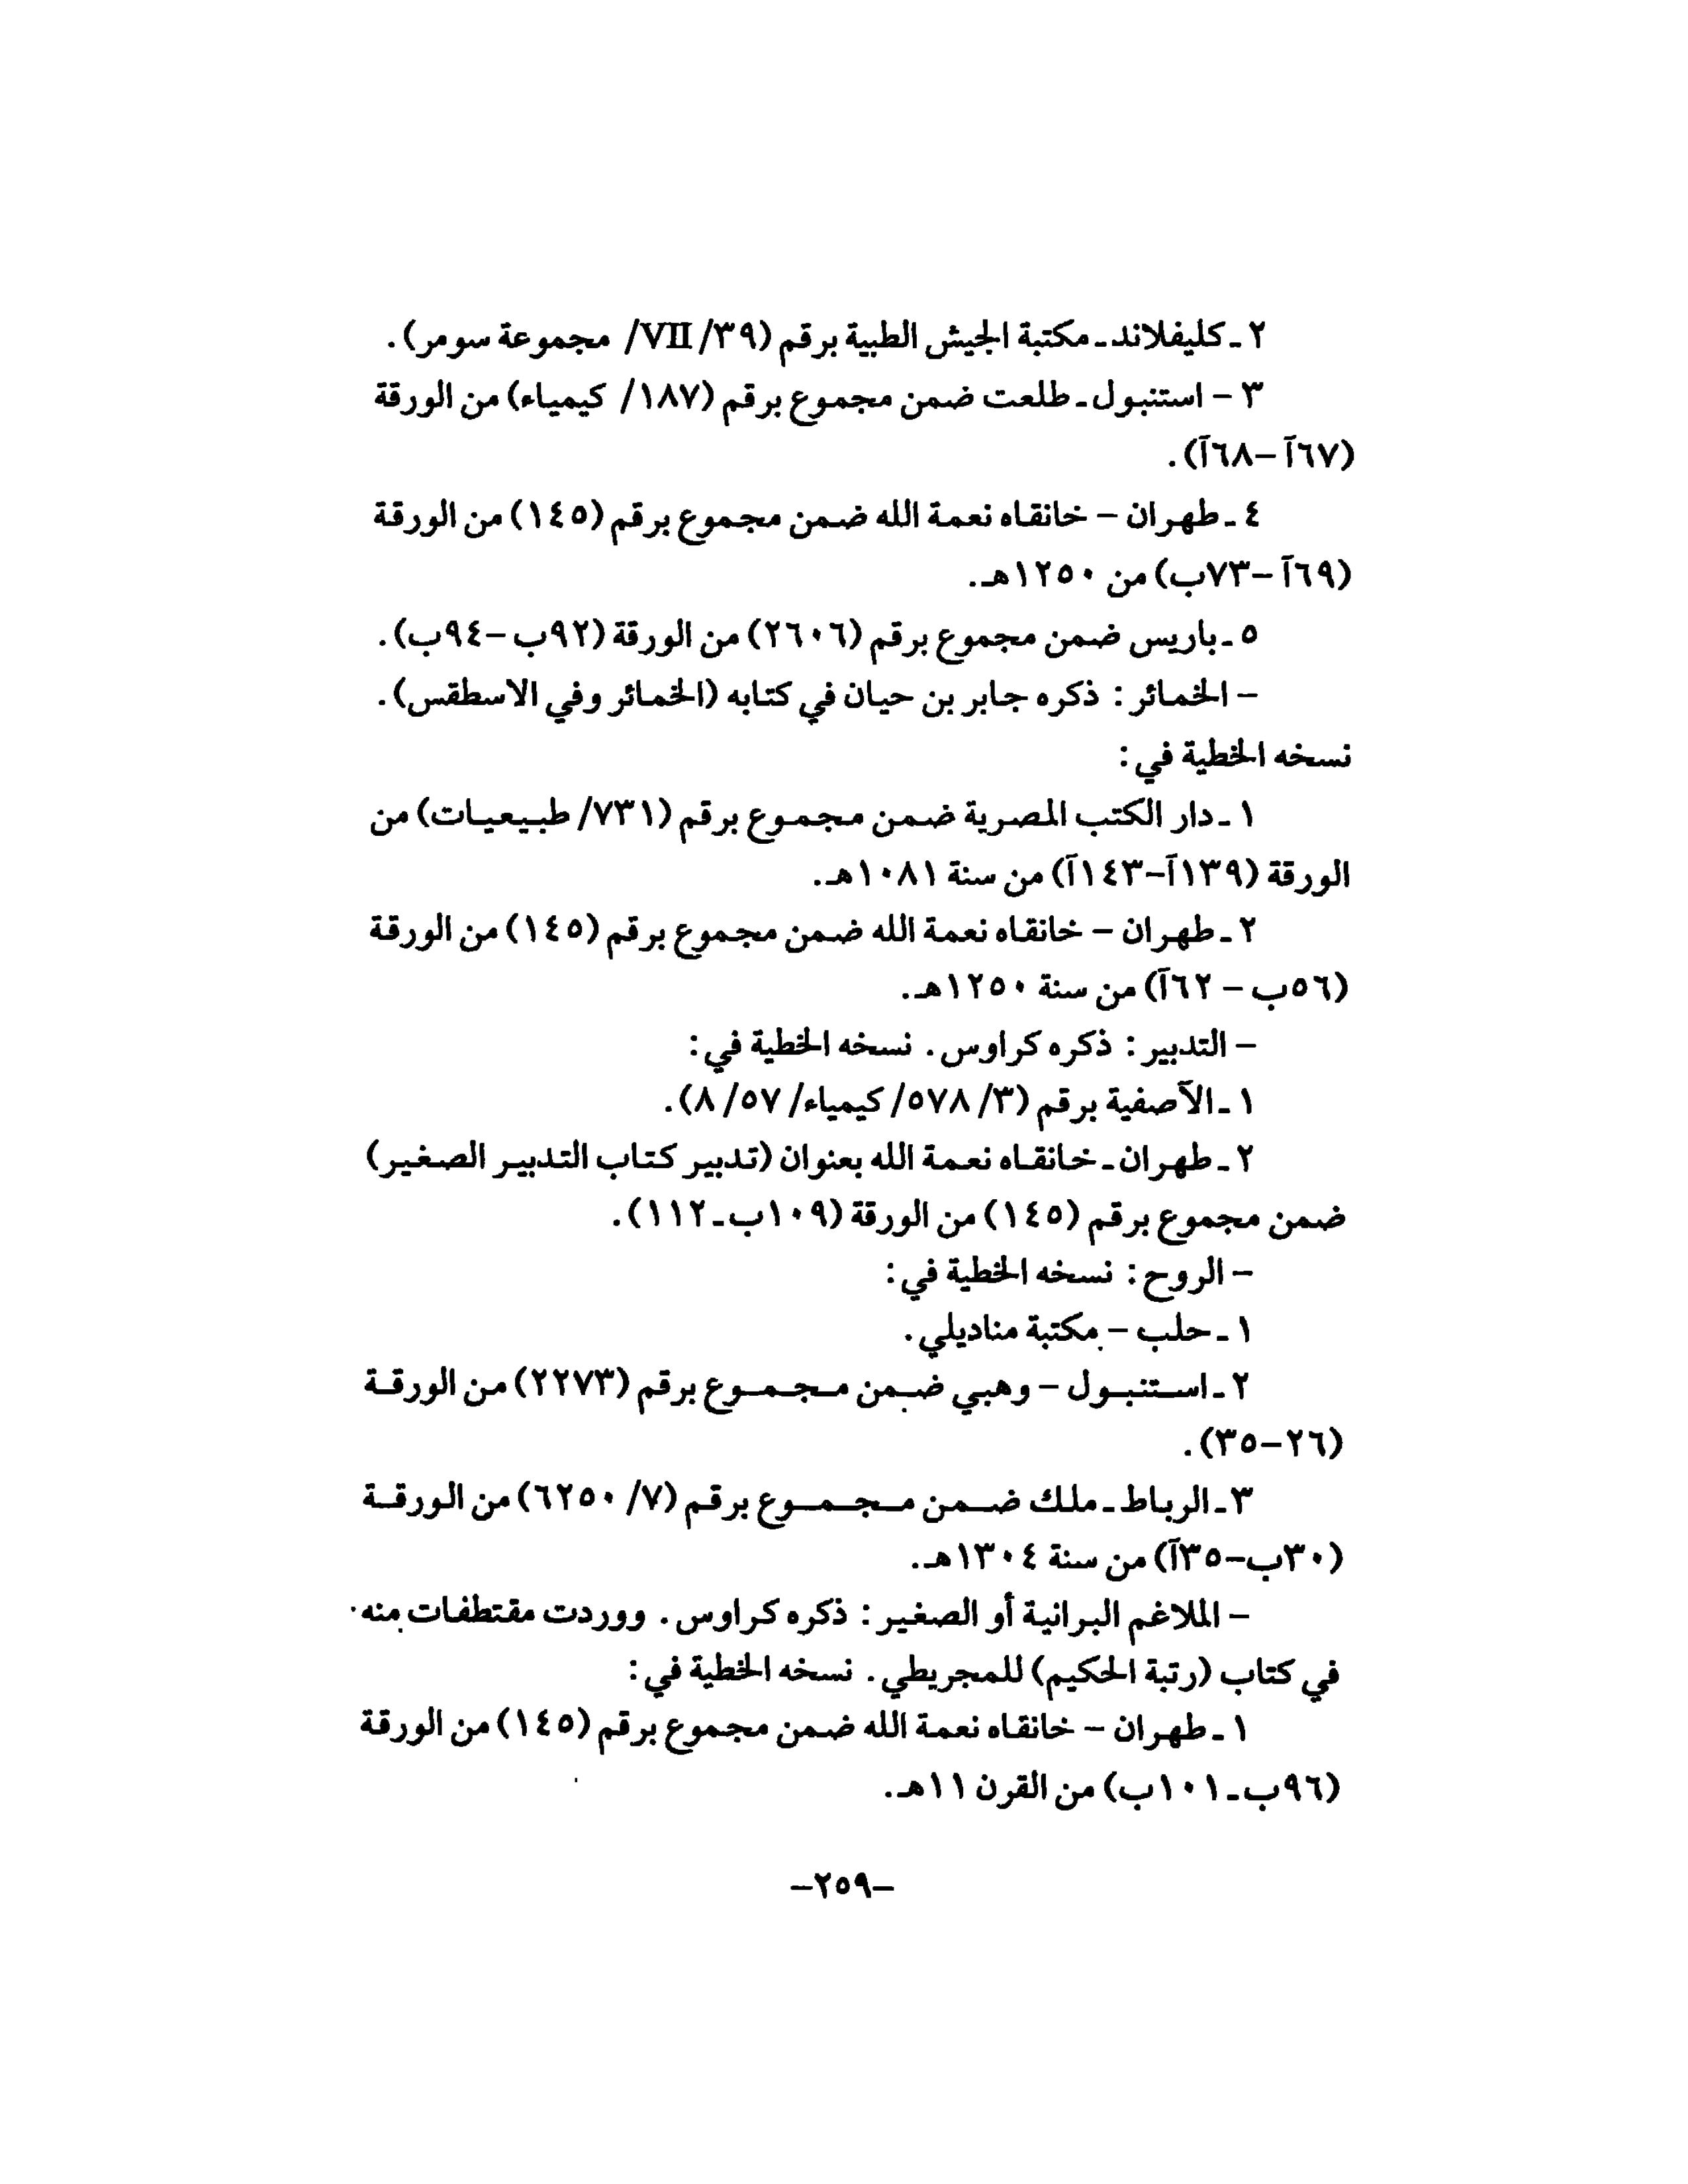 ٢ ـ كليفلاند ـ مكتبة الجيش الطبية برقم (٣٩/ VII/ مجموعة سومر) .
٣ – استنبول ـ طلعت ضمن مجموع برقم (١٨٧/ كيمياء) من الورقة
(٦٧آ –٦٨آ) .
٤ ـ طهران – خانقاه نعمة الله ضمن مجموع برقم (١٤٥) من الورقة
(٦٩آ –٧٣ب) من ١٢٥٠هـ.
٥ ـ باريس ضمن مجموع برقم (٢٦٠٦) من الورقة (٩٢ب –٩٤ب) .
– الخمائر : ذكره جابر بن حيان في كتابه (الخمائر وفي الاسطقس) .
نسخه الخطية في :
١ ـ دار الكتب المصرية ضمن مجموع برقم (٧٣١/ طبيعيات) من
الورقة (١٣٩آ–١٤٣آ) من سنة ١٠٨١هـ.
٢ ـ طهران – خانقاه نعمة الله ضمن مجموع برقم (١٤٥) من الورقة
(٥٦ب – ٦٢آ) من سنة ١٢٥٠هـ.
– التدبير : ذكره كراوس . نسخه الخطية في :
١ ـ الآصفية برقم (٣/ ٥٧٨/ كيمياء/ ٥٧/ ٨) .
٢ ـ طهران ـ خانقاه نعمة الله بعنوان (تدبير كتاب التدبير الصغير)
ضمن مجموع برقم (١٤٥) من الورقة (١٠٩ب ـ ١١٢) .
– الروح : نسخه الخطية في :
١ ـ حلب – مكتبة مناديلي .
٢ ـ استنبول – وهبي ضمن مجموع برقم (٢٢٧٣) من الورقة
(٢٦–٣٥) .
٣ ـ الرباط ـ ملك ضمن مجموع برقم (٧/ ٦٢٥٠) من الورقة
(٣٠ب–٣٥آ) من سنة ١٣٠٤هـ.
– الملاغم البرانية أو الصغير : ذكره كراوس . ووردت مقتطفات منه
في كتاب (رتبة الحكيم) للمجريطي . نسخه الخطية في :
١ ـ طهران – خانقاه نعمة الله ضمن مجموع برقم (١٤٥) من الورقة
(٩٦ب ـ ١٠١ب) من القرن ١١هـ.
–٢٥٩–